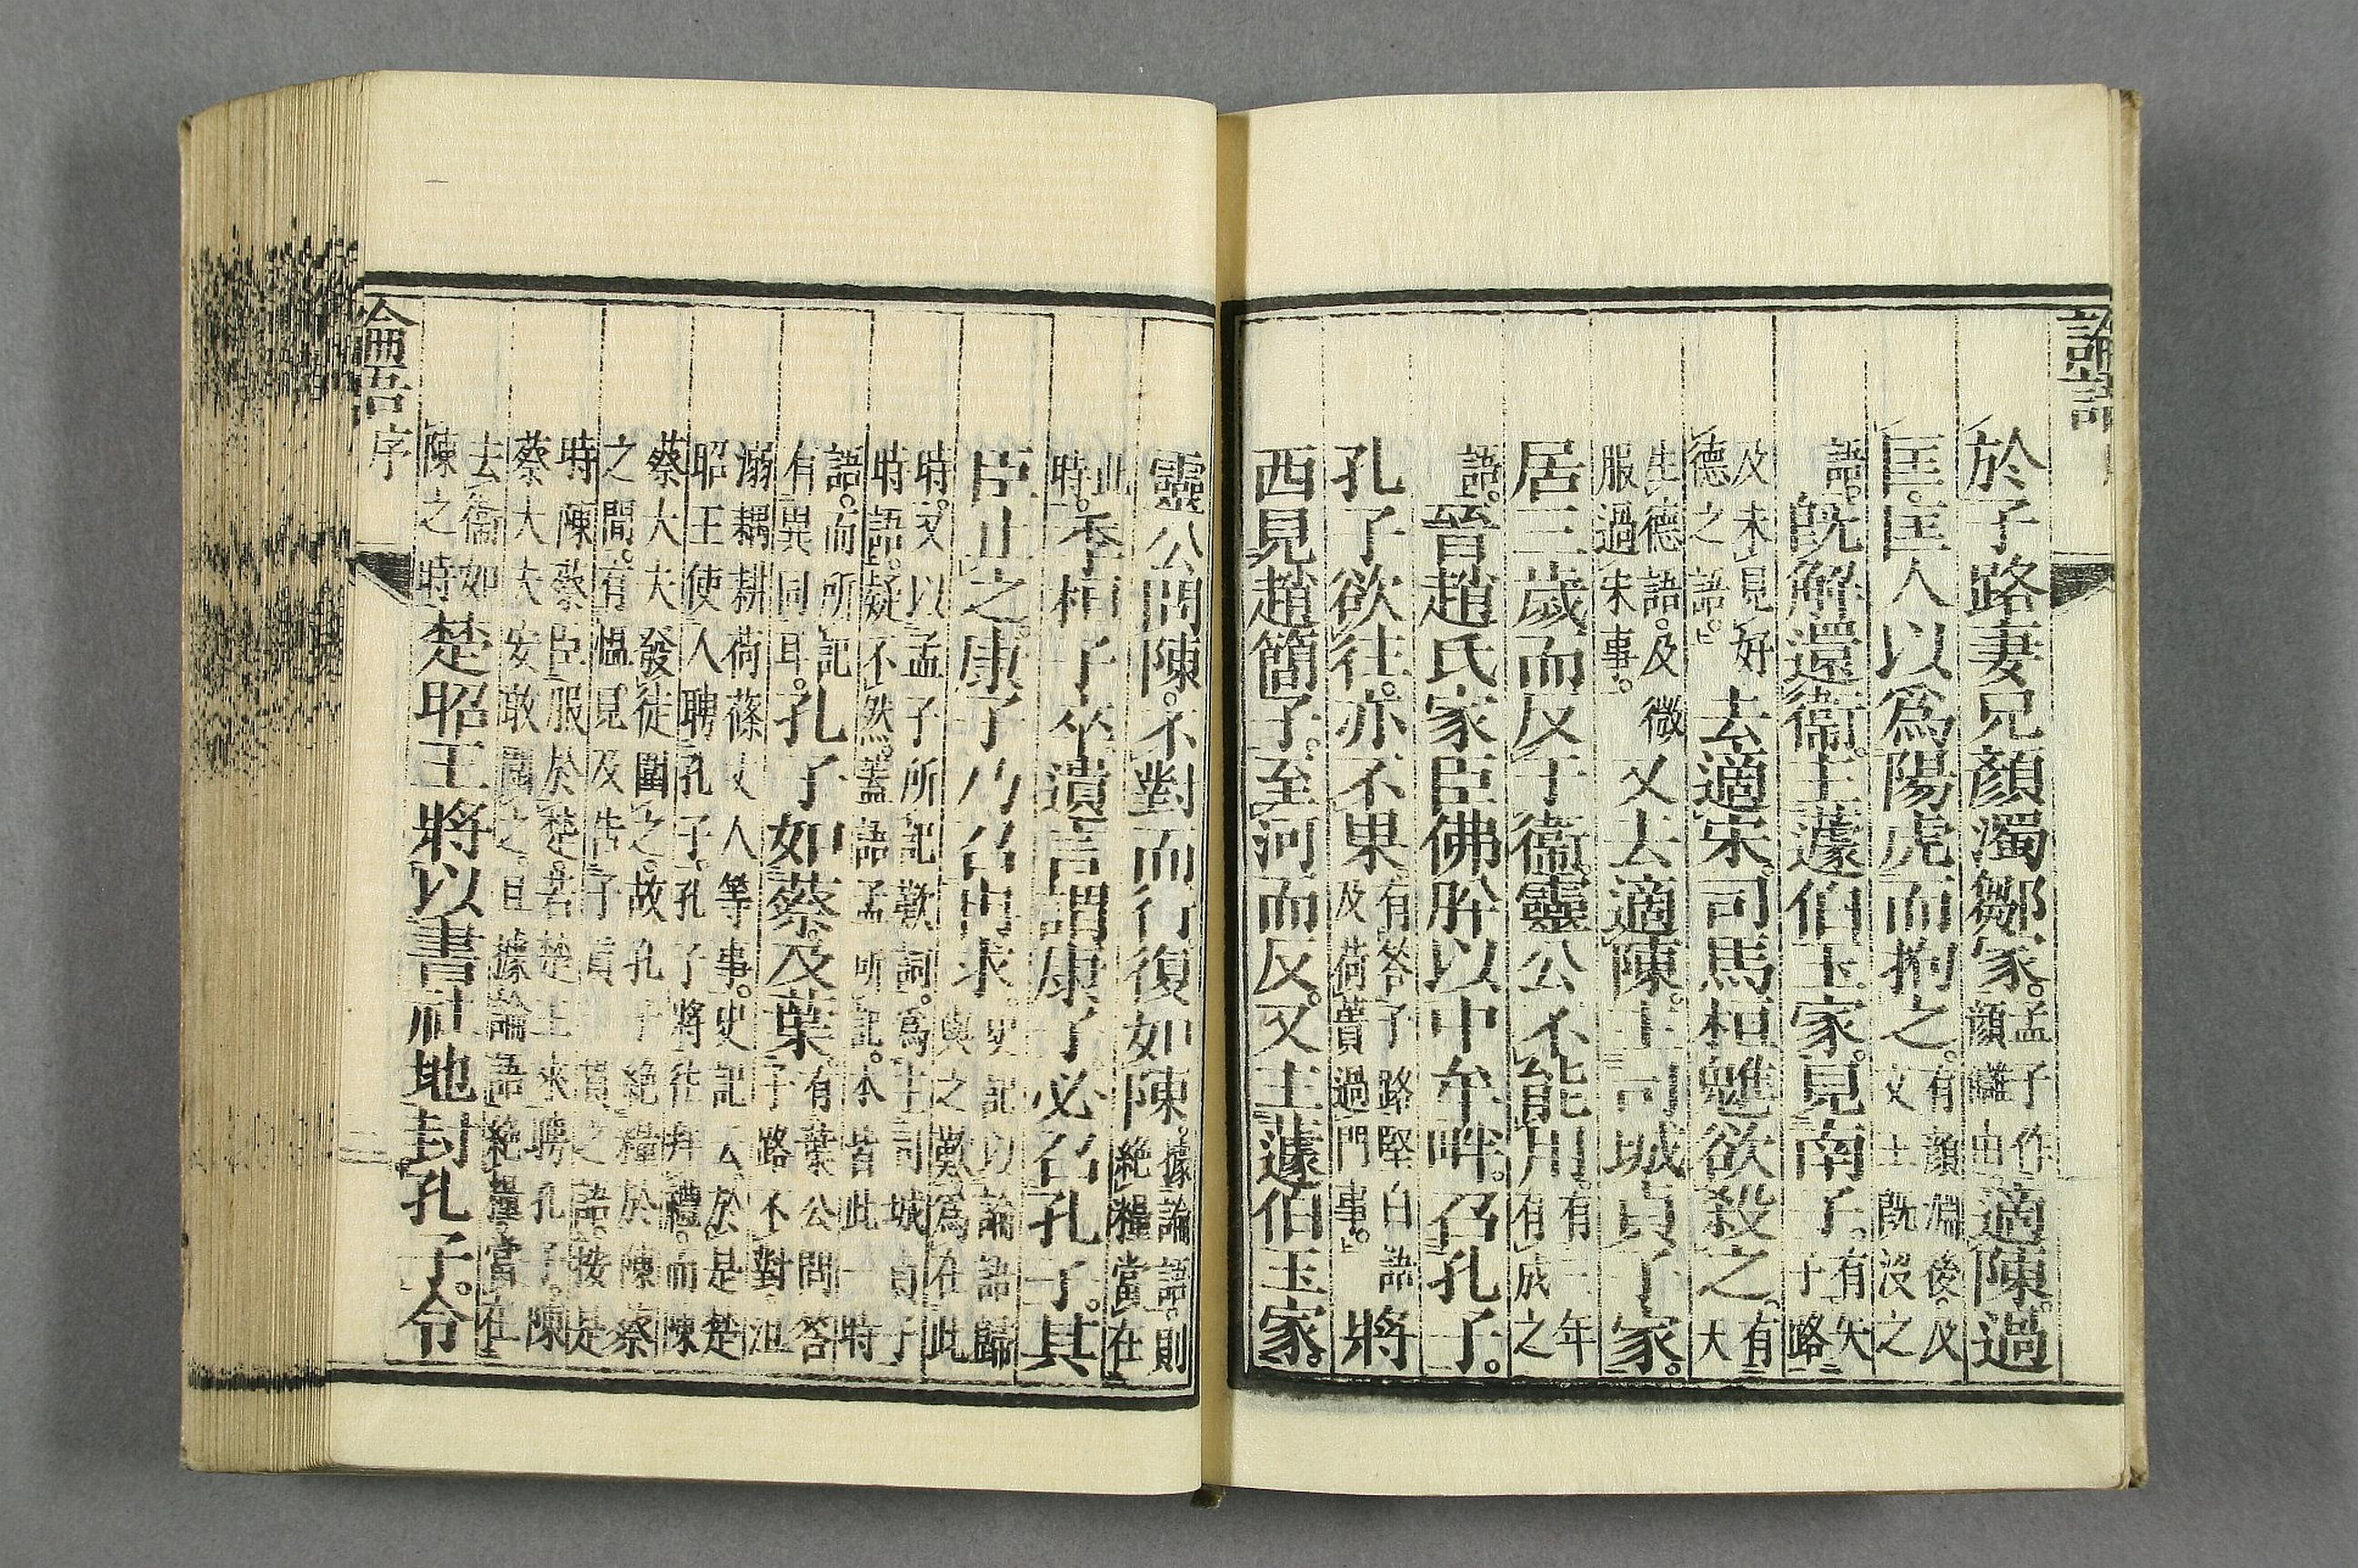 論語
於子路妻兄顏濁鄒家。孟子作顏讎由適陳。過
匡。匡人以爲陽虎而拘之。有顏淵後。及文王旣沒之
語。旣解還衞。主蘧伯玉家。見南子。有矢子路
及未見好德之語。去適宋。司馬桓魋欲殺之。有天
生德語。及微服過宋事。又去適陳。主司城貞子家。
居三歲而反于衞。靈公不能用。有三年有成之
語。晉趙氏家臣佛肸以中牟畔。召孔子。
孔子欲往。亦不果。有答子路堅白語及荷蕢過門事。將
西見趙簡子。至河而反。又主蘧伯玉家。
靈公問陳。不對而行。復如陳。據論語。則絕糧當在
此時。季桓子卒。遺言謂康子必召孔子。其
臣止之。康子乃召冉求。史記以論語歸與之歎爲在此
時。又以孟子所記歎詞。爲主司城貞子時語。疑不然。蓋語孟所記。本皆此一時
語。而所記有異同耳。孔子如蔡。及葉。有葉公問答子路不對。沮
溺耦耕荷蓧丈人等事。史記云於是楚昭王使人聘孔子。孔子將往拜禮。而陳
蔡大夫發徒圍之。故孔子絕糧於陳蔡之間。有慍見及告子貢一貫之語。按是
時陳蔡臣服於楚。若楚王來聘孔子。陳蔡大夫安敢圍之。且據論語絕糧當在
去衞如陳之時。楚昭王將以書社地封孔子。令
論語 序